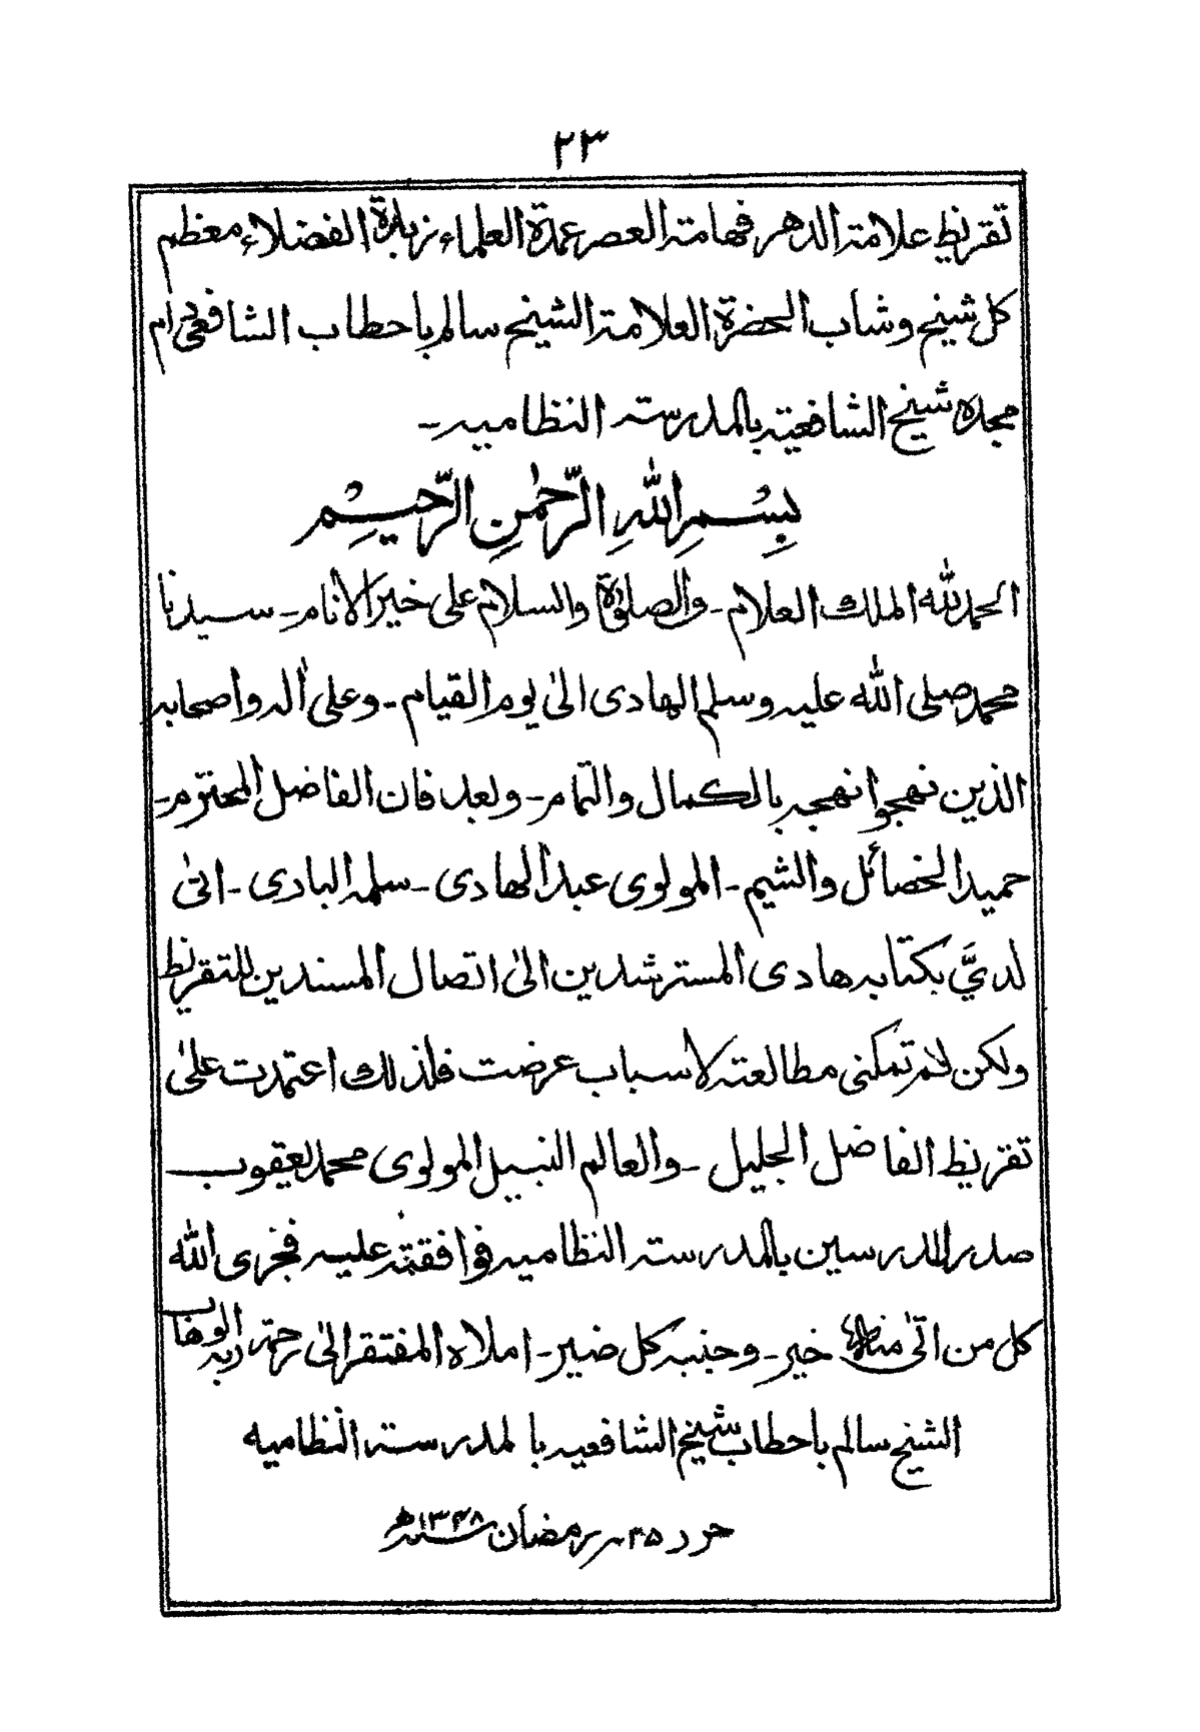 ٢٣
تقريظ علامة الدهر فهامة العصر عمدة العلماء زبدة الفضلاء معظم
كل شيخ وشاب الحضرة العلامة الشيخ سالم باحطاب الشافعي دام
مجده شيخ الشافعية بالمدرسة النظامية ـ
بِسْمِ اللهِ الرَّحْمٰنِ الرَّحِيْمِ
الحمد لله الملك العلام ـ والصلوٰة والسلام على خير الانام ـ سيدنا
محمد صلى الله عليه وسلم الهادى الىٰ يوم القيام ـ وعلى اٰله واصحابه
الذين نهجوا نهجه بالكمال والتمام ـ وبعد فان الفاضل المحترم ـ
حميد الخصائل والشيم ـ المولوى عبد الهادى ـ سلمه البادى ـ اتىٰ
لديَّ بكتابه هادى المسترشدين الىٰ اتصال المسندين للتقريظ
ولكن لم تمكنى مطالعته لاسباب عرضت فلذلك اعتمدت علىٰ
تقريظ الفاضل الجليل ـ والعالم النبيل المولوى محمد يعقوب
صدر المدرسين بالمدرسة النظامية فوافقته عليه فجزى الله
كل من اتىٰ خير ـ وجنبه كل ضير ـ املاه المفتقر الىٰ رحمة ربه الوهاب
الشيخ سالم باحطاب شيخ الشافعيه بالمدرسة النظاميه
حرر ٢٥ ر رمضان سنه ١٣٣٨ھ